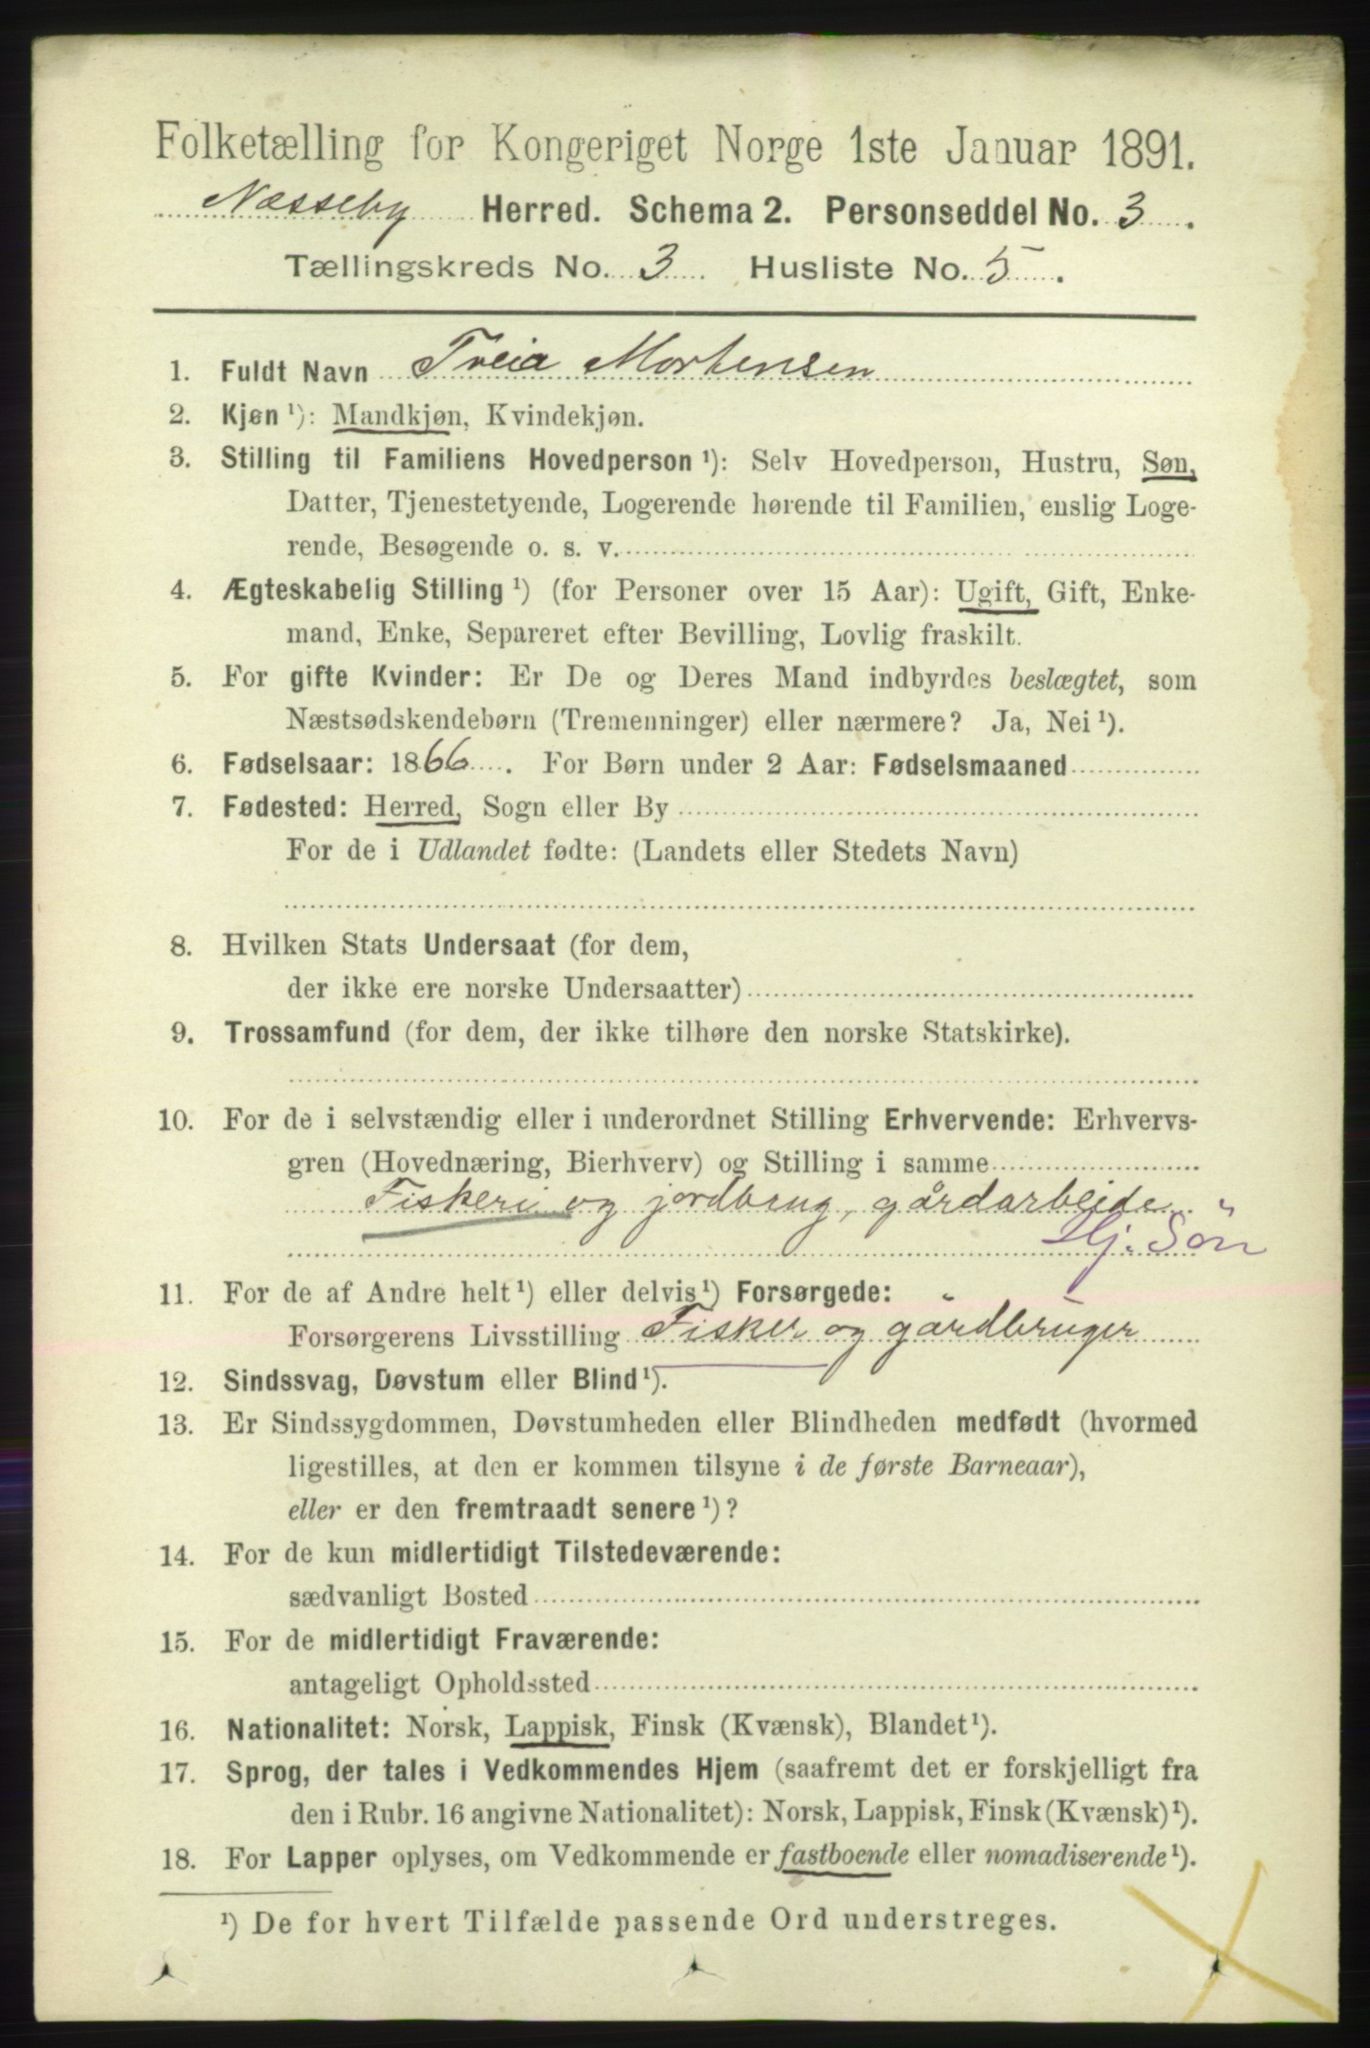 Folketælling for Kongeriget Norge 1ste Januar 1891.
Næsseby Herred. Schema 2. Personseddel No. 3.
Tællingskreds No. 3 Husliste No. 5.
1. Fuldt Navn Treia Mortensen
2. Kjøn ¹): Mandkjøn, Kvindekjøn.
3. Stilling til Familiens Hovedperson ¹): Selv Hovedperson, Hustru, Søn,
Datter, Tjenestetyende, Logerende hørende til Familien, enslig Loge-
rende, Besøgende o. s. v.
4. Ægteskabelig Stilling ¹) (for Personer over 15 Aar): Ugift, Gift, Enke-
mand, Enke, Separeret efter Bevilling, Lovlig fraskilt.
5. For gifte Kvinder: Er De og Deres Mand indbyrdes beslægtet, som
Næstsødskendebørn (Tremenninger) eller nærmere? Ja, Nei ¹).
6. Fødselsaar: 1866. For Børn under 2 Aar: Fødselsmaaned
7. Fødested: Herred, Sogn eller By
For de i Udlandet fødte: (Landets eller Stedets Navn)
8. Hvilken Stats Undersaat (for dem,
der ikke ere norske Undersaatter)
9. Trossamfund (for dem, der ikke tilhøre den norske Statskirke).
10. For de i selvstændig eller i underordnet Stilling Erhvervende: Erhvervs-
gren (Hovednæring, Bierhverv) og Stilling i samme
Fiskeri og jordbrug, gårdarbeide
Hj. Søn
11. For de af Andre helt ¹) eller delvis ¹) Forsørgede:
Forsørgerens Livsstilling Fisker og gårdbruger
12. Sindssvag, Døvstum eller Blind ¹).
13. Er Sindssygdommen, Døvstumheden eller Blindheden medfødt (hvormed
ligestilles, at den er kommen tilsyne i de første Barneaar),
eller er den fremtraadt senere ¹)?
14. For de kun midlertidigt Tilstedeværende:
sædvanligt Bosted
15. For de midlertidigt Fraværende:
antageligt Opholdssted
16. Nationalitet: Norsk, Lappisk, Finsk (Kvænsk), Blandet ¹).
17. Sprog, der tales i Vedkommendes Hjem (saafremt det er forskjelligt fra
den i Rubr. 16 angivne Nationalitet): Norsk, Lappisk, Finsk (Kvænsk) ¹).
18. For Lapper oplyses, om Vedkommende er fastboende eller nomadiserende ¹).
¹) De for hvert Tilfælde passende Ord understreges.